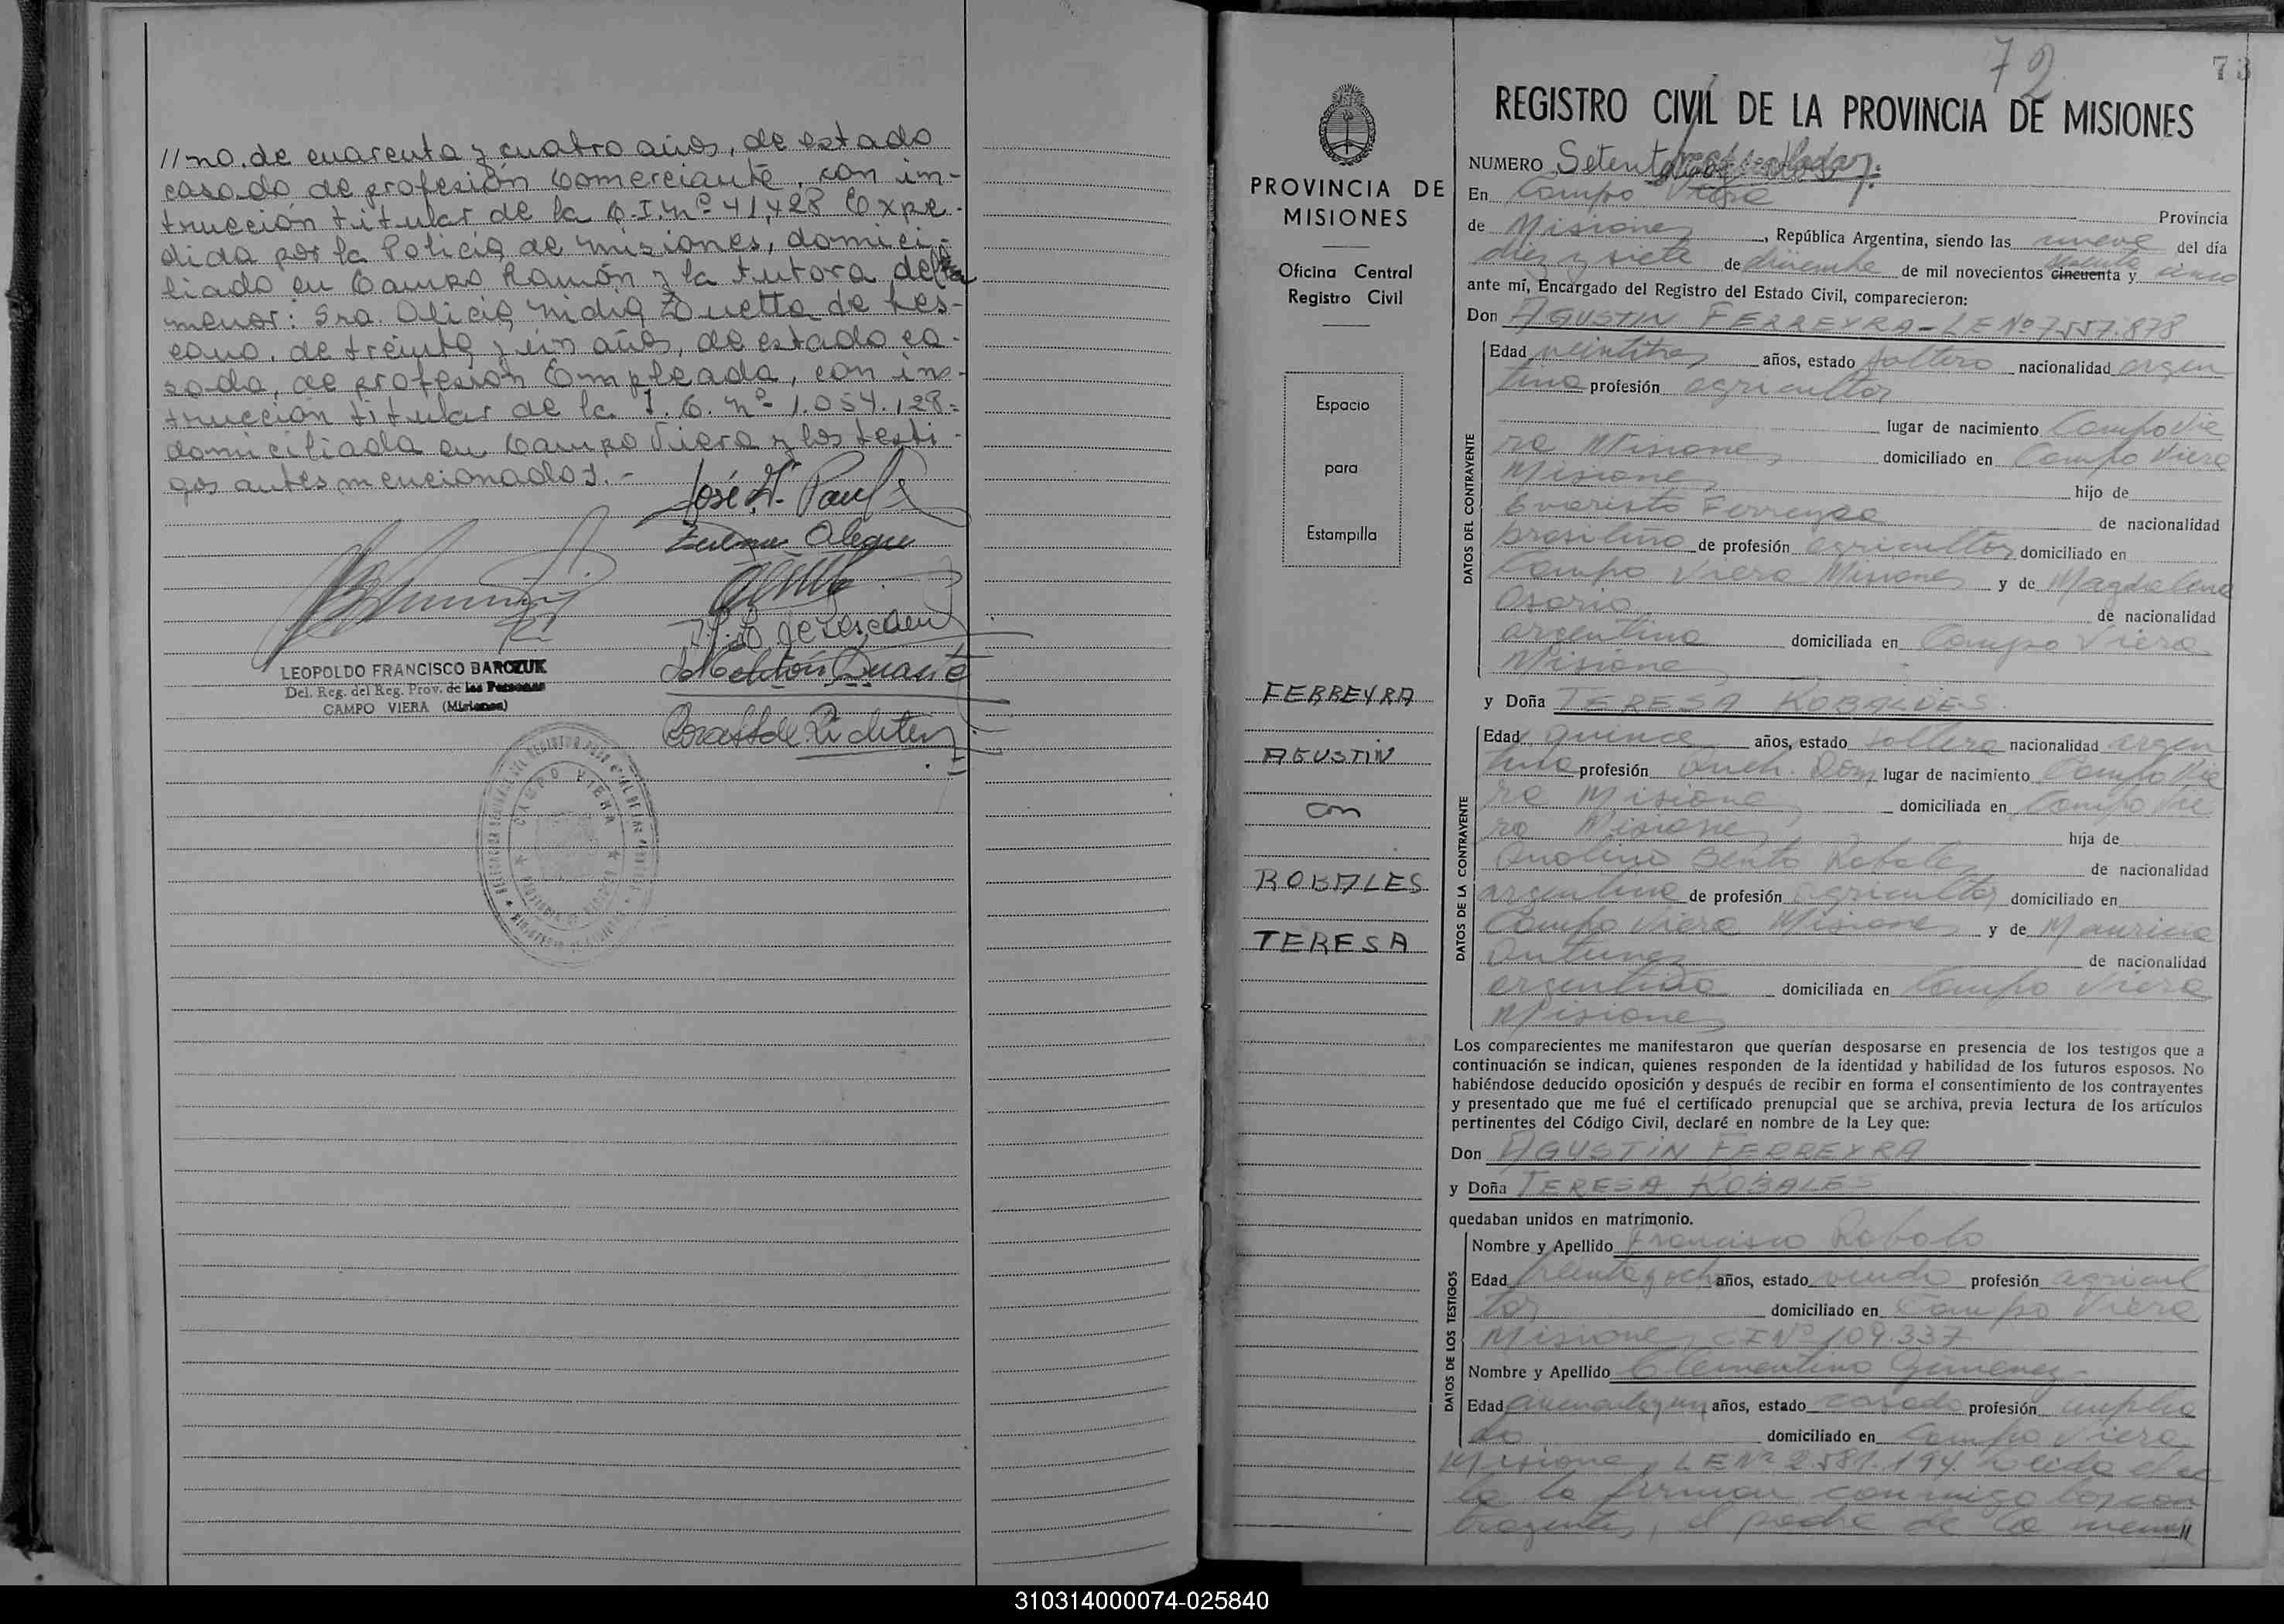 //no. de cuarenta y cuatro años, de estado
casado de profesión Comerciante, con in-
trucción titular de la C.I. nº 41,428 Expe-
dida por la Policia de misiones, domici-
liado en Campo Ramón y la tutora de la
menor: Sra. Alicia Nidia Zuetta de Les-
cano. de treinta y un años, de estado ca-
sada, de profesión Empleada, con ins-
trucción titular de la I. C. nº 1.054.128=
domiciliada en Campo Viera y los testi-
gos antes mencionados.-
José
LEOPOLDO FRANCISCO BARCZUK
Del. Reg. del Reg. Prov. de las Personas
CAMPO VIERA (Misiones)
CAMPO VIERA
PROVINCIA DE MISIONES
Oficina Central
Registro Civil
Espacio
para
Estampilla
FERREYRA
AGUSTIN
con
ROBALES
TERESA
72
73
REGISTRO CIVIL DE LA PROVINCIA DE MISIONES
NUMERO Setenta y dos
En Campo Viera Provincia
de Misiones, República Argentina, siendo las nueve del día
diez y siete de diciembre de mil novecientos cincuenta y sesenta cinco
ante mí, Encargado del Registro del Estado Civil, comparecieron:
Don AGUSTIN FERREYRA - LE Nº 7.557.878
Edad veintitres años, estado soltero nacionalidad argen
tina profesión agricultor
lugar de nacimiento Campo Vie
ra Misiones domiciliado en Campo Viera
Misiones hijo de
Evaristo Ferreyra de nacionalidad
brasileño de profesión agricultor domiciliado en
Campo Viera Misiones y de Magdalena
Osorio de nacionalidad
argentina domiciliada en Campo Viera
Misiones
y Doña TERESA ROBALDES
Edad quince años, estado soltera nacionalidad argen
tina profesión Queh. Dom. lugar de nacimiento Campo Vie
ra Misiones domiciliada en Campo Vie
ra Misiones hija de
Bento Robales de nacionalidad
argentino de profesión agricultor domiciliado en
Campo Viera Misiones y de Mauricia
Antunez de nacionalidad
argentina domiciliada en Campo Viera
Misiones
DATOS DEL CONTRAYENTE
DATOS DE LA CONTRAYENTE
Los comparecientes me manifestaron que querían desposarse en presencia de los testigos que a
continuación se indican, quienes responden de la identidad y habilidad de los futuros esposos. No
habiéndose deducido oposición y después de recibir en forma el consentimiento de los contrayentes
y presentado que me fué el certificado prenupcial que se archiva, previa lectura de los artículos
pertinentes del Código Civil, declaré en nombre de la Ley que:
Don AGUSTIN FERREYRA
y Doña TERESA ROBALES
quedaban unidos en matrimonio.
DATOS DE LOS TESTIGOS
Nombre y Apellido Francisco Rabolo
Edad treinta y och años, estado viudo profesión agricul
tor domiciliado en Campo Viera
Misiones CI Nº 109.337
Nombre y Apellido Clementino Gimenez-
Edad cuarenta y un años, estado casado profesión emplea
do domiciliado en Campo Viera
Misiones LE Nº 2.581.194. Leida el ac
ta la firman conmigo los con
trayentes, el padre de la menor//
310314000074-025840